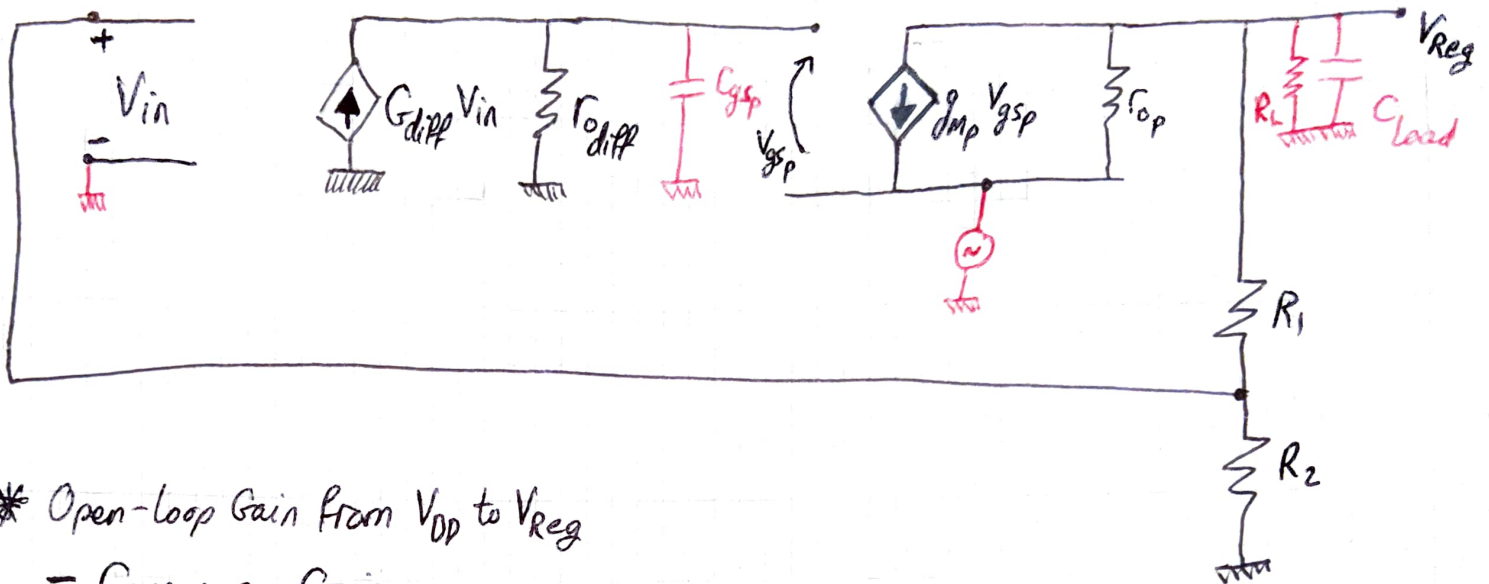 +
Vin
-
GdiffVin
rodiff
Cgsp
Vgsp
gmpVgsp
rop
RL
Cload
VReg
~
R1
R2
* Open-loop Gain from VDD to VReg